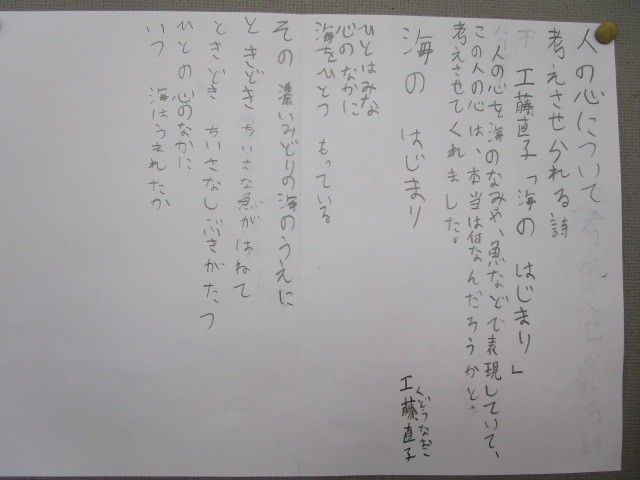 人の心について
考えさせられる詩
工藤直子「海の はじまり」
人の心を海のなみや、魚などで表現していて、
この人の心は、本当は何なんだろうかと
考えさせてくれました。
海の はじまり
くどうなおこ
工藤直子
ひとはみな
心のなかに
海をひとつ もっている
その 濃いみどりの海のうえに
ときどき ちいさな魚がはねて
ときどき ちいさなしぶきがたつ
ひとの心のなかに
いつ 海はうまれたか